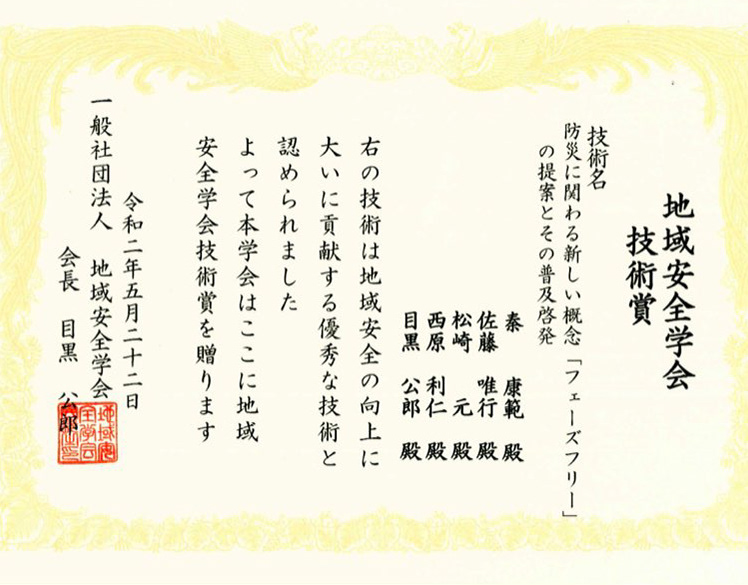 地域安全学会
技術賞
技術名
防災に関わる新しい概念「フェーズフリー」
の提案とその普及啓発
秦 康範 殿
佐藤 唯行 殿
松崎 元 殿
西原 利仁 殿
目黒 公郎 殿
右の技術は地域安全の向上に
大いに貢献する優秀な技術と
認められました
よって本学会はここに地域
安全学会技術賞を贈ります
令和二年五月二十二日
一般社団法人 地域安全学会
会長 目黒 公郎
地域安
全学会